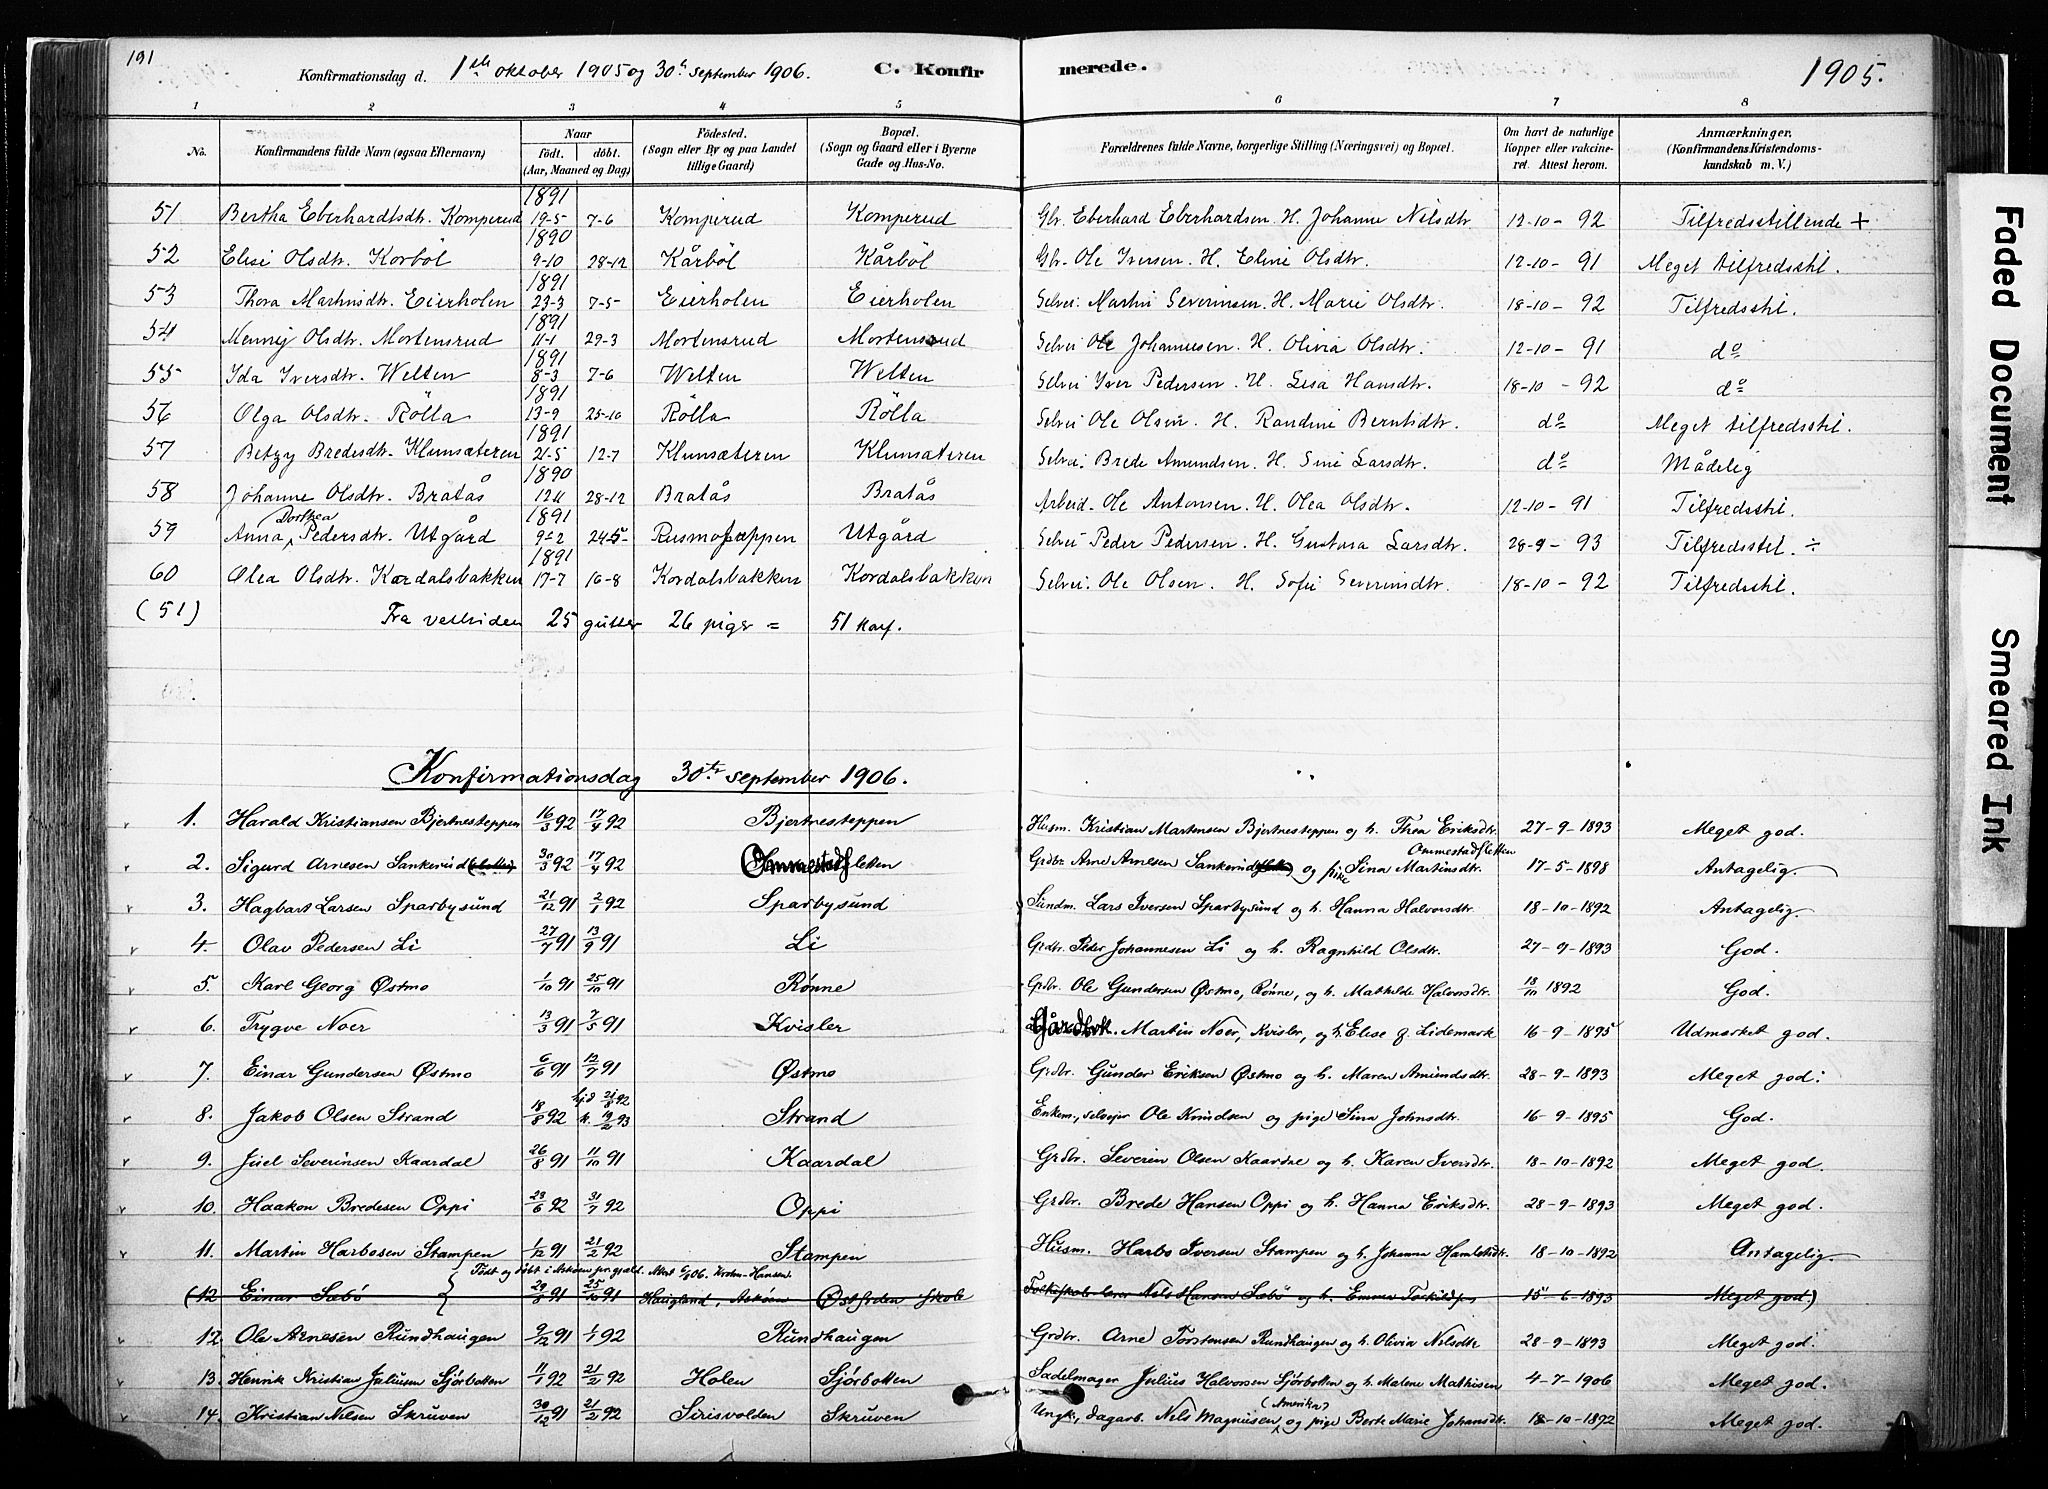 191
Konfirmationsdag d. 1ste oktober 1905 og 30te september 1906. C. Konfirmerede. 1905.
1 2 3 4 5 6 7 8
No. Konfirmandens fulde Navn (ogsaa Efternavn) Naar født, døbt. (Aar, Maaned og Dag) Fødested. (Sogn eller By og paa Landet tillige Gaard) Bopæl. (Sogn og Gaard eller i Byerne Gade og Hus-No. Forældrenes fulde Navne, borgerlige Stilling (Næringsvei) og Bopæl. Om havt de naturlige Kopper eller vaccineret. Attest herom. Anmærkninger. (Konfirmandens Kristendomskundskab m. V.)
51 Bertha Eberhardtsdtr. Komperud 1891 19-5 7-6 Komperud Komperud Gbr. Eberhard Eberhardsen. H. Johanne Nilsdtr. 12-10-92 Tilfredsstillende +
52 Elise Olsdtr. Korböl 1890 9-10 28-12 Kårböl Kårböl Gbr. Ole Iversen. H. Eline Olsdtr. 12-10-91 Meget tilfredsstil.
53 Thora Martinsdtr. Eierholen 1891 23-3 7-5 Eierholen Eierholen Selvei. Martin Severinsen. H. Marie Olsdtr. 18-10-92 Tilfredsstil.
54 Menny Olsdtr. Mortensrud 1891 11-1 29-3 Mortensrud Mortensrud Selvei Ole Johannesen. H. Olivia Olsdtr. 12-10-91 do
55 Ida Iversdtr. Welten 1891 8-3 7-6 Welten Welten Selvei Iver Pedersen. H. Lisa Hansdtr. 18-10-92 do
56 Olga Olsdtr. Rölla 1891 13-9 25-10 Rölla Rölla Selvei Ole Olsen. H. Randine Berntsdtr. do Meget tilfredsstil.
57 Betzy Bredesdtr. Klunsæteren 1891 21-5 12-7 Klunsæteren Klunsæteren Selvei. Brede Amundsen. H. Sine Larsdtr. do Mådelig
58 Johanne Olsdtr. Bratås 1890 12-11 28-12 Bratås Bratås Arbeid. Ole Antonsen. H. Olea Olsdtr. 12-10-91 Tilfredsstil.
59 Anna Dorthea Pedersdtr. Utgård 1891 9-2 24-5 Rusmofæppen Utgård Selvei Peder Pedersen. H. Gustava Larsdtr. 28-9-93 Tilfredsstil. ÷
60 Olea Olsdtr. Kordalsbakken 1891 17-7 16-8 Kordalsbakken Kordalsbakken Selvei. Ole Olsen. H. Sofie Severinsdtr. 18-10-92 Tilfredsstil.
(51) Fra vestsiden 25 gutter 26 piger = 51 konf.
Konfirmationsdag 30te september 1906.
1. Harald Kristiansen Bjertnesteppen 16/3 92 17/4 92 Bjertnesteppen Husm. Kristian Martensen Bjertnesteppen og h. Thea Eriksdtr. 27-9-1893 Meget god.
2. Sigurd Arnesen Sankerud 30/3 92 17/4 92 Ommestadsletten Grdbr. Arne Arnesen Sankerud og pike Sina Martinsdtr. Ommestadsletten 17-5-1898 Antagelig.
3. Hagbart Larsen Sparbysund 21/12 91 2/1 92 Sparbysund Sundm. Lars Iversen Sparbysund og h. Hanna Halvorsdtr. 18-10-1892 Antagelig.
4. Olav Pedersen Li 27/7 91 13/9 91 Li Grdbr. Peder Johannesen Li og h. Ragnhild Olsdtr. 27-9-1893 God.
5. Karl Georg Østmo 1/10 91 25/10 91 Rønne Grdbr. Ole Gundersen Østmo, Rønne, og h. Mathilde Halvorsdtr. 13/11 1892 God.
6. Trygve Noer 13/3 91 7/5 91 Kvisler Gårdbrk. Martin Noer, Kvisler, og h. Elise f. Lidemark 16-9-1895 Udmærket god.
7. Einar Gundersen Østmo 6/6 91 12/7 91 Østmo Grdbr. Gunder Eriksen Østmo og h. Maren Amundsdtr. 28-9-1893 Meget god.
8. Jakob Olsen Strand 18/8 92 hjd 21/8 92 k. 19/2 93 Strand Enkem., selveier Ole Knudsen og pige Sina Johnsdtr. 16-9-1895 God.
9. Juel Severinsen Kaardal 26/8 91 11/10 91 Kaardal Grdbr. Severin Olsen Kaardal og h. Karen Iversdtr. 18-10-1892 Meget god.
10. Haakon Bredesen Oppi 23/6 92 31/7 92 Oppi Grdbr. Brede Hansen Oppi og h. Hanna Eriksdtr. 28-9-1893 Meget god.
11. Martin Harbosen Stampen 1/12 91 21/2 92 Stampen Husm. Harbo Iversen Stampen og h. Johanna Hamletsdtr. 18-10-1892 Antagelig.
Født og døbt i Askøen prgjæld. Attest 6/8 06. Krohn-Hansen.
(12 Einar Sæbö 29/8 91 25/10 91 Haugland, Askøen Østfarden skole Folkeskolelærer Nils Hansen Sæbö og h. Emma 15-6-1893 Meget god)
12 Ole Arnesen Rundhaugen 9/12 91 1/1 92 Rundhaugen Grdbr. Arne Torstensen Rundhaugen og h. Olivia Nilsdtr 28-9-1893 Meget god.
13. Henrik Kristian Juliusen Sjørbotten 11/1 92 21/2 92 Holen Sjørbotten Sadelmager Julius Halvorsen Sjørbotten og h. Malene Mathisen 4-7-1906 Meget god.
14. Kristian Nilsen Skruven 30/12 91 21/2 92 Sirisvolden Skruven Ungk., dagarb. Nils Magnusen (Amerika) og pige Berte Marie Johansdtr. 18-10-1892 Meget god.
Faded Document
Smeared Ink